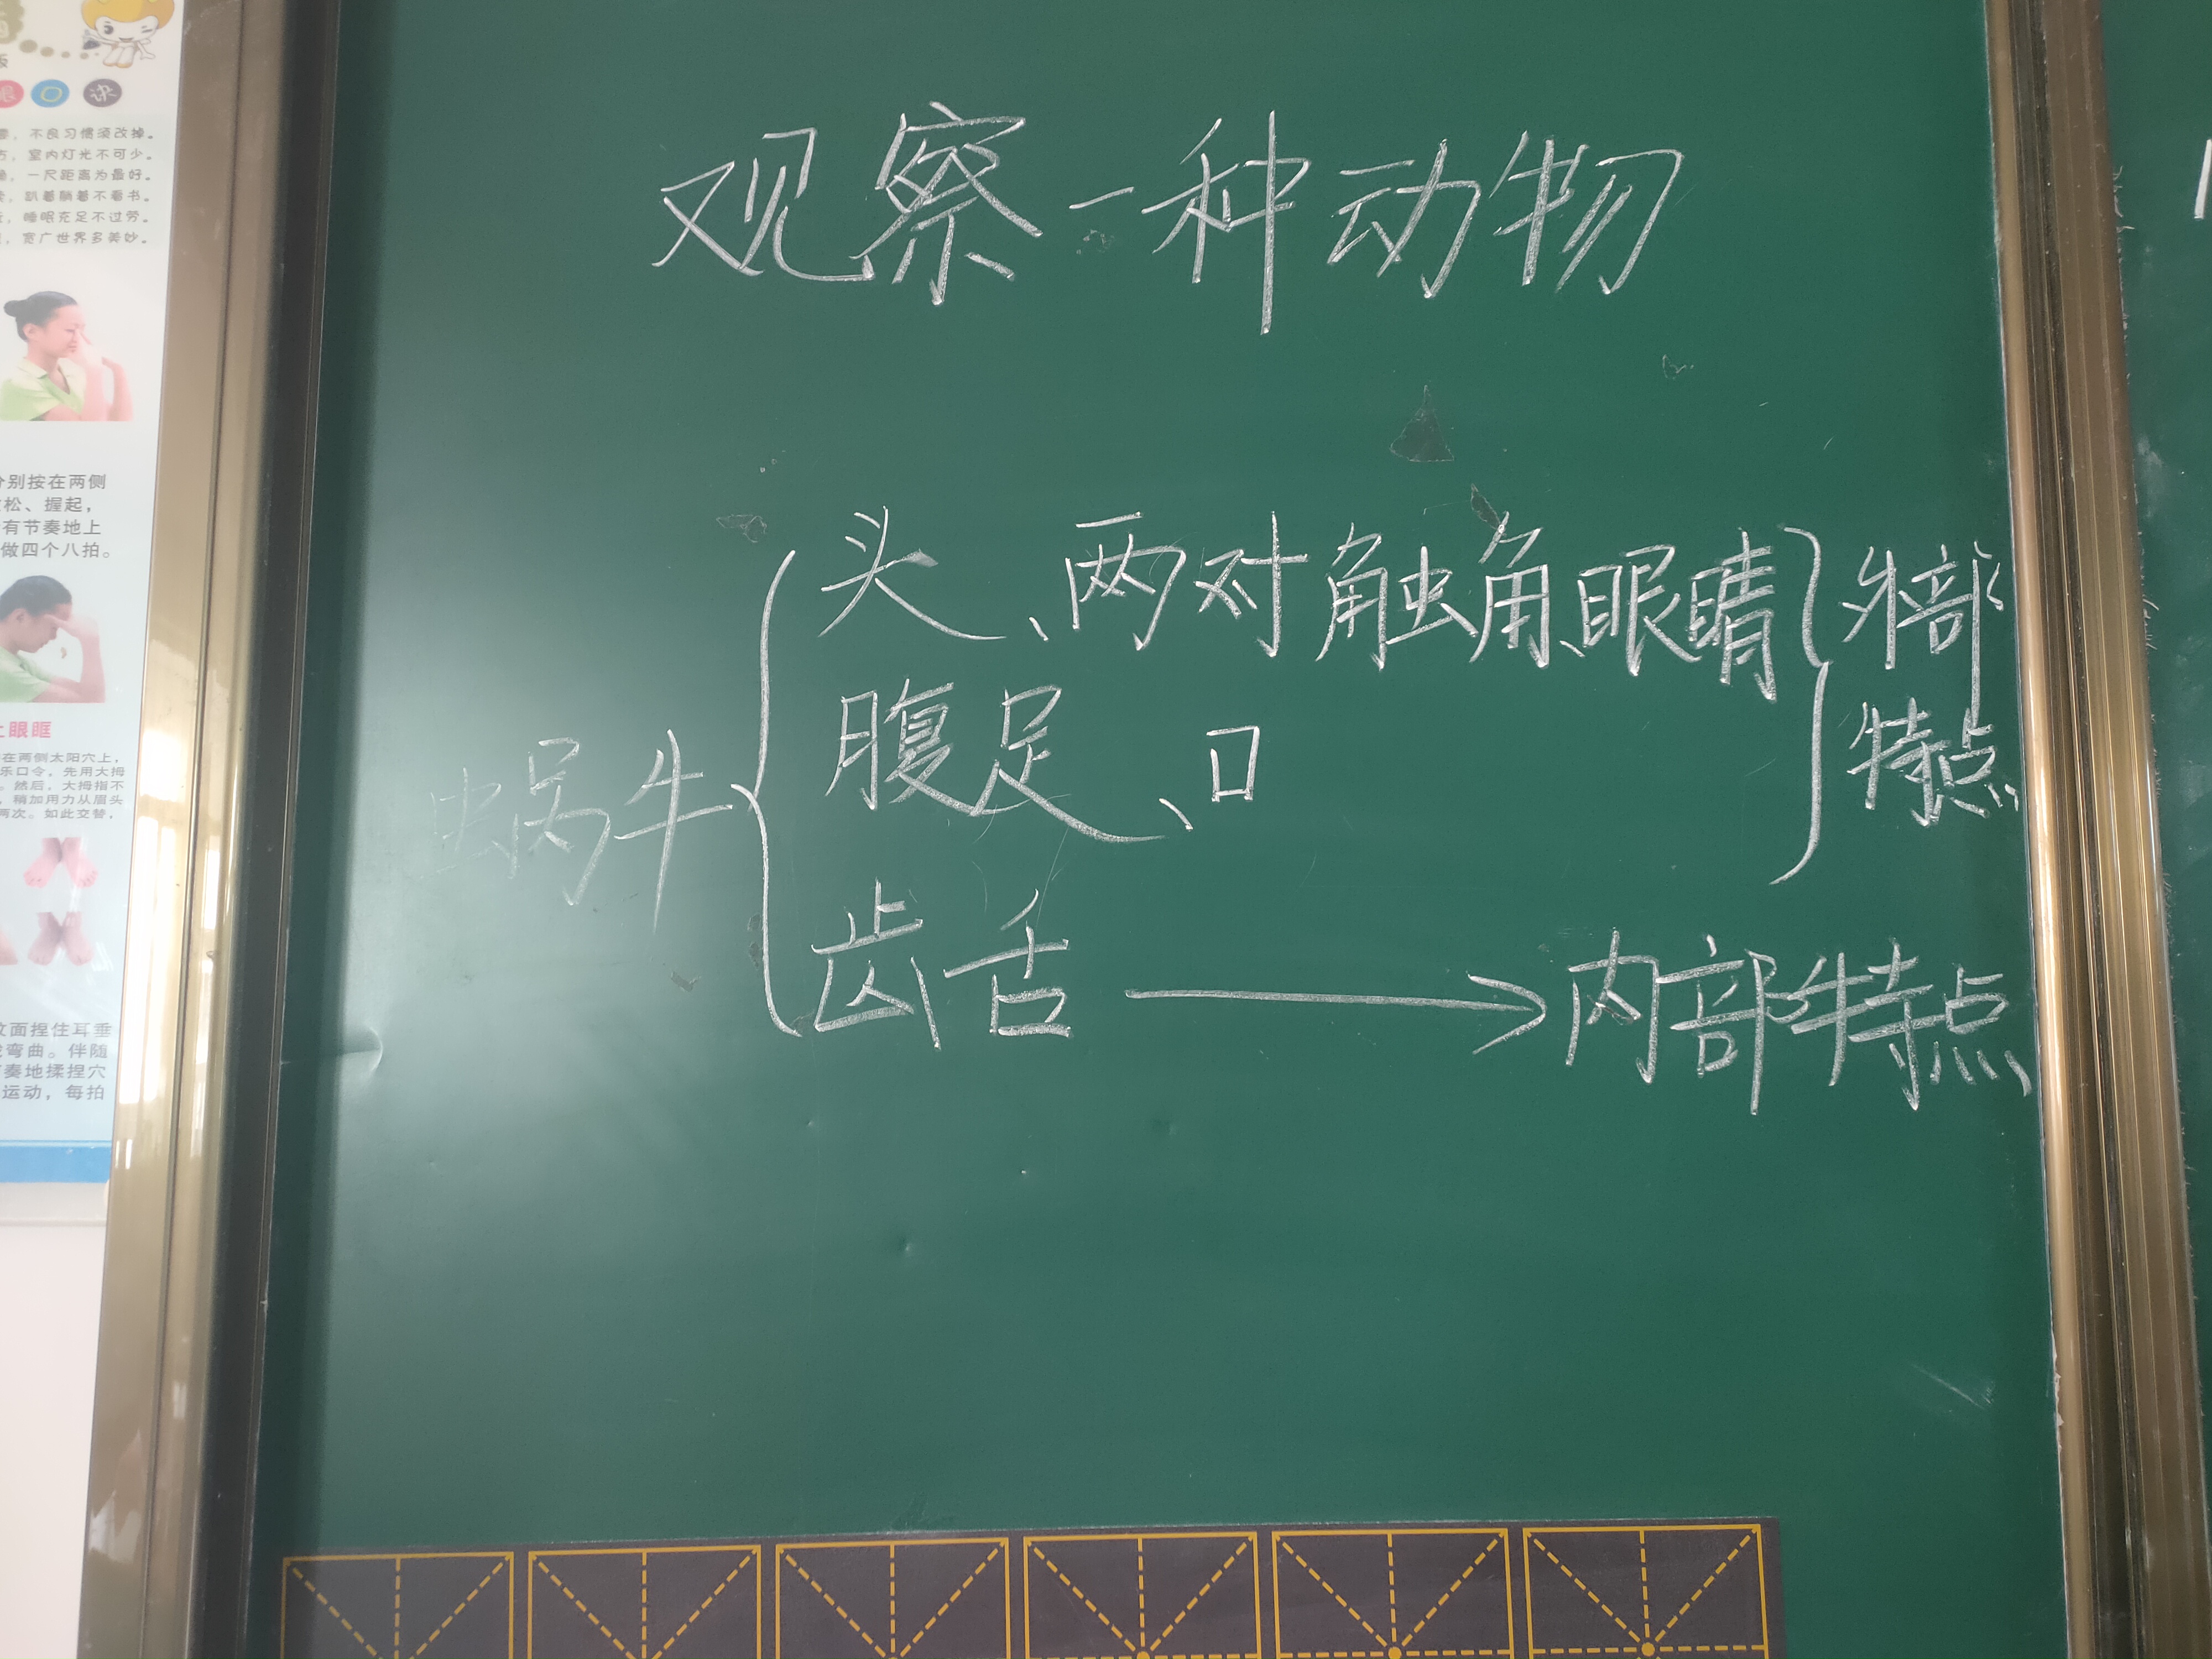 观察一种动物
头、两对触角、眼睛
外部
特点
腹足、口
蜗牛
齿舌
内部特点
诀
不良习惯须改掉。
室内灯光不可少。
一尺距离为最好。
趴着躺着不看书。
睡眠充足不过劳。
宽广世界多美妙。
分别按在两侧
松、握起，
有节奏地上
做四个八拍。
上眼眶
在两侧太阳穴上，
乐口令，先用大拇
。然后，大拇指不
，稍加用力从眉头
两次。如此交替，
面捏住耳垂
弯曲。伴随
奏地揉捏穴
运动，每拍